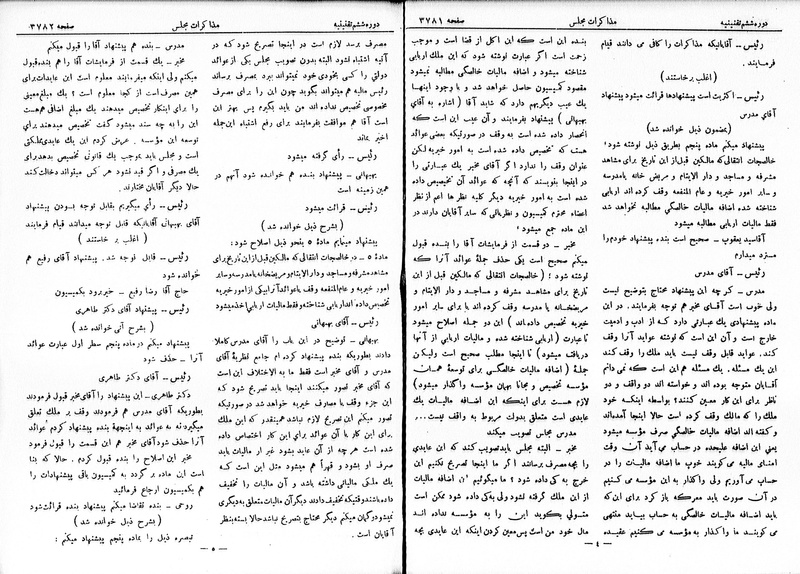 دوره ششم تقنینیه
مذاکرات مجلس
صفحه ۳۷۸۱
رئیس ــ آقایانیکه مذاکرات را کافی می دانند قیام
فرمایند.
(اغلب برخاستند)
رئیس ــ اکثریت است پیشنهادها قرائت میشود پیشنهاد
آقای مدرس
(بمضمون ذیل خوانده شد)
پیشنهاد میکنم ماده پنجم بطریق ذیل نوشته شود:
خالصجات انتقالی که مالکین قبل از این تاریخ برای مشاهد
مشرفه و مساجد و دار الایتام و مریض خانه یا مدرسه
و سایر امور خیریه و عام المنفعه وقف کرده اند اربابی
شناخته شده اضافه مالیات خالصگی مطالبه نخواهد شد
فقط مالیات اربابی مطالبه میشود
آقاسید یعقوب ــ صحیح است بنده پیشنهاد خودم را
مسترد میدارم
رئیس ــ آقای مدرس
مدرس ــ گر چه این پیشنهاد محتاج بتوضیح نیست
ولی خوب است آقای مخبر هم توجه بفرمایند. در این
ماده پیشنهادی یک عبارتی دارد که از ادب و ادمیت
خارج است و آن این است که نوشته عواید آنرا وقف
کند. عواید قابل وقف نیست باید ملک را وقف کند
این یک مسئله. یک مسئله هم این است که نمی دانم
آقایان متوجه بوده اند و خواسته اند دو واقف و دو
ناظر برای این کار معین کنند؟ بواسطه اینکه خود
ملک را که مالک وقف کرده است حالا اینجا آمده‌اند
و گفته اند اضافه مالیات خالصگی صرف مؤسسه میشود
یعنی این اضافه علیحده در حساب می‌آید آن وقت
امنای مالیه می گویند خوب ما اضافه مالیات را در
حساب می آوریم ولی واگذار به این مؤسسه می کنیم
در آن صورت باید معرکه باز کرد برای این که
باید اضافه مالیات خالصگی به حساب بیاید منتهی
می گویند ما واگذار به مؤسسه می کنیم عقیده
بنده این است که این اکل از قفا است و موجب
زحمت است اگر عبارت نوشته شود که این ملک اربابی
شناخته میشود و اضافه مالیات خالصگی مطالبه نمیشود
مقصود کمیسیون حاصل خواهد شد و با وجود اینها
یک عیب دیگر هم دارد که شاید آقا (اشاره به آقای
بهبهانی) پیشنهاد بفرمایند و آن عیب این است که
انحصار داده شده است به وقف در صورتیکه بعضی عوائد
هست که تخصیص داده شده است به امور خیریه لیکن
عنوان وقف را ندارد اگر آقای مخبر یک عبارتی را
در اینجا بنویسند که آنچه که عوائد آن تخصیص داده
شده است به امور خیریه دیگر کلیه نظر ها اعم از نظر
اعضاء محترم کمیسیون و نظریاتی که سایر آقایان دارند در
این ماده جمع میشود؛
مخبر ــ دو قسمت از فرمایشات آقا را بنده قبول
میکنم صحیح است یکی حذف جمله عوائد آنرا که
نوشته شود؛ (خالصجات انتقالی که مالکین قبل از این
تاریخ برای مشاهد مشرفه و مساجد و دار الایتام و
مریضخانه یا مدرسه وقف کرده اند یا برای سایر امور
خیریه تخصیص داده‌اند) این دو جمله اصلاح میشود
تا عبارت (اربابی شناخته شده و مالیات اربابی از آنها
دریافت میشود) تا اینجا مطلب صحیح است ولیکن
جمله (اضافه مالیات خالصگی برای توسعه همان
مؤسسه تخصیص و مجاناً بهمان مؤسسه واگذار میشود)
لازم هست برای اینکه این اضافه مالیات یک
عایدی است متعلق بدولت مربوط به واقف نیست...
مدرس مجلس تصویب میکند
مخبر ــ البته مجلس باید تصویب کند که این عایدی
را بچه مصرف برسانند؟ اگر ما اینجا تصریح نکنیم این
خرج به کی داده شود؟ ما میگوئیم اضافه مالیات
از این ملک گرفته نشود ولی به کی داده شود ممکن است
متولی بگوید این را به مؤسسه نداده اند
مال خود من است پس معین کردن اینکه این عایدی بچه
— ٤ —
دوره ششم تقنینیه
مذاکرات مجلس
صفحه ۳۷۸۲
مصرف برسد لازم است در اینجا تصریح شود که در
آتیه اشتباه نشود البته بدون تصویب مجلس یکی از عوائد
دولتی را کسی بخودی خود نمیتواند ببرد مصرف برساند
رئیس مالیه هم میتواند بگوید چون این را برای مصرف
مخصوصی تخصیص نداده اند من باید بگیرم پس بهتر این
است آقا هم موافقت بفرمایند برای رفع اشتباه این جمله
اخیر بماند
رئیس ــ رأی گرفته میشود
بهبهانی ــ پیشنهاد بنده هم خوانده شود آنهم در
همین زمینه است
رئیس ــ قرائت میشود
(بشرح ذیل خوانده شد)
پیشنهاد مینمایم ماده ۵ بنحو ذیل اصلاح شود:
ماده ۵ ــ در خالصجات انتقالی که مالکین قبل از این تاریخ برای
مشاهد مشرفه و مساجد و دار الایتام و مریضخانه یا مدرسه و سایر
امور خیریه و عام المنفعه وقف یا عوائد آنرا بیکی از امور خیریه
تخصیص داده اند اربابی شناخته و فقط مالیات اربابی اخذ میشود
رئیس ــ آقای بهبهانی
بهبهانی ــ توضیح در این باب را آقای مدرس کاملا
دادند بطوریکه بنده پیشنهاد کرده ام جامع نظریه آقای
مدرس و آقای مخبر است فقط ما به الاختلاف این است
که آقای مخبر تصور میکنند اینجا باید تصریح شود که
این جزء وقف یا مصرف خیریه خواهد شد در صورتیکه
تصور میکنم این تصریح لازم نباشد همینقدر که این ملک
برای این کار یا آن عوائد برای این کار اختصاص داده
شده است هر چه از آن عاید بشود غیر از مالیات باید
صرف او بشود و قهراً هم میشود مثل این است که
یک ملکی مالیاتی داشته باشد و آن مالیات را تخفیف
داده باشند و قتیکه تخفیف دادند دیگر آن مالیات متعلق به دیگری
نمیشود و گمان میکنم دیگر محتاج بتصریح نباشد حالا بسته بنظر
آقایان است.
مدرس ــ بنده هم پیشنهاد آقا را قبول میکنم
مخبر ــ یک قسمت از فرمایشات آقا را هم بنده قبول
میکنم ولی اینکه میفرمایند معلوم است این عایدات برای
همین مصرف است از کجا معلوم است؟ یک مبلغ معینی
را برای اینکار تخصیص میدهند یک مبلغ اضافی هم هست
این را به چه سند میشود گفت تخصیص میدهند برای
توسعه این مؤسسه. عرض کردم این یک عایدی مملکتی
است و مجلس باید بموجب یک قانونی تخصیص بدهد برای
یک مصرفی و اگر قید نشود هر کس میتواند دخالت کند
حالا دیگر آقایان مختارند.
رئیس ــ رأی میگیریم بقابل توجه بودن پیشنهاد
آقای بهبهانی آقایانیکه قابل توجه میدانند قیام فرمایند
(اغلب برخاستند)
رئیس ــ قابل توجه شد. پیشنهاد آقای رفیع هم
خوانده شود
حاج آقا رضا رفیع ــ خیر برود بکمیسیون
رئیس ــ پیشنهاد آقای دکتر طاهری
(بشرح آتی خوانده شد)
پیشنهاد میکنم در ماده پنجم سطر اول عبارت عوائد
آنرا ــ حذف شود
رئیس ــ آقای دکتر طاهری
دکتر طاهری ــ این پیشنهاد را آقای مخبر قبول فرمودند
بطوریکه آقای مدرس هم فرمودند وقف بر ملک تعلق
میگیرد نه به عوائد به اینجهة بنده پیشنهاد کردم «عوائد
آنرا» حذف شود آقای مخبر هم این قسمت را قبول فرمود
است این ماده بر گردد به کمیسیون باقی پیشنهادات را
هم بکمیسیون ارجاع فرمائید
روحی ــ بنده تقاضا میکنم پیشنهاد بنده قرائت شود
(بشرح ذیل خوانده شد)
تبصره ذیل را بماده پنجم پیشنهاد میکنم:
— ٥ —